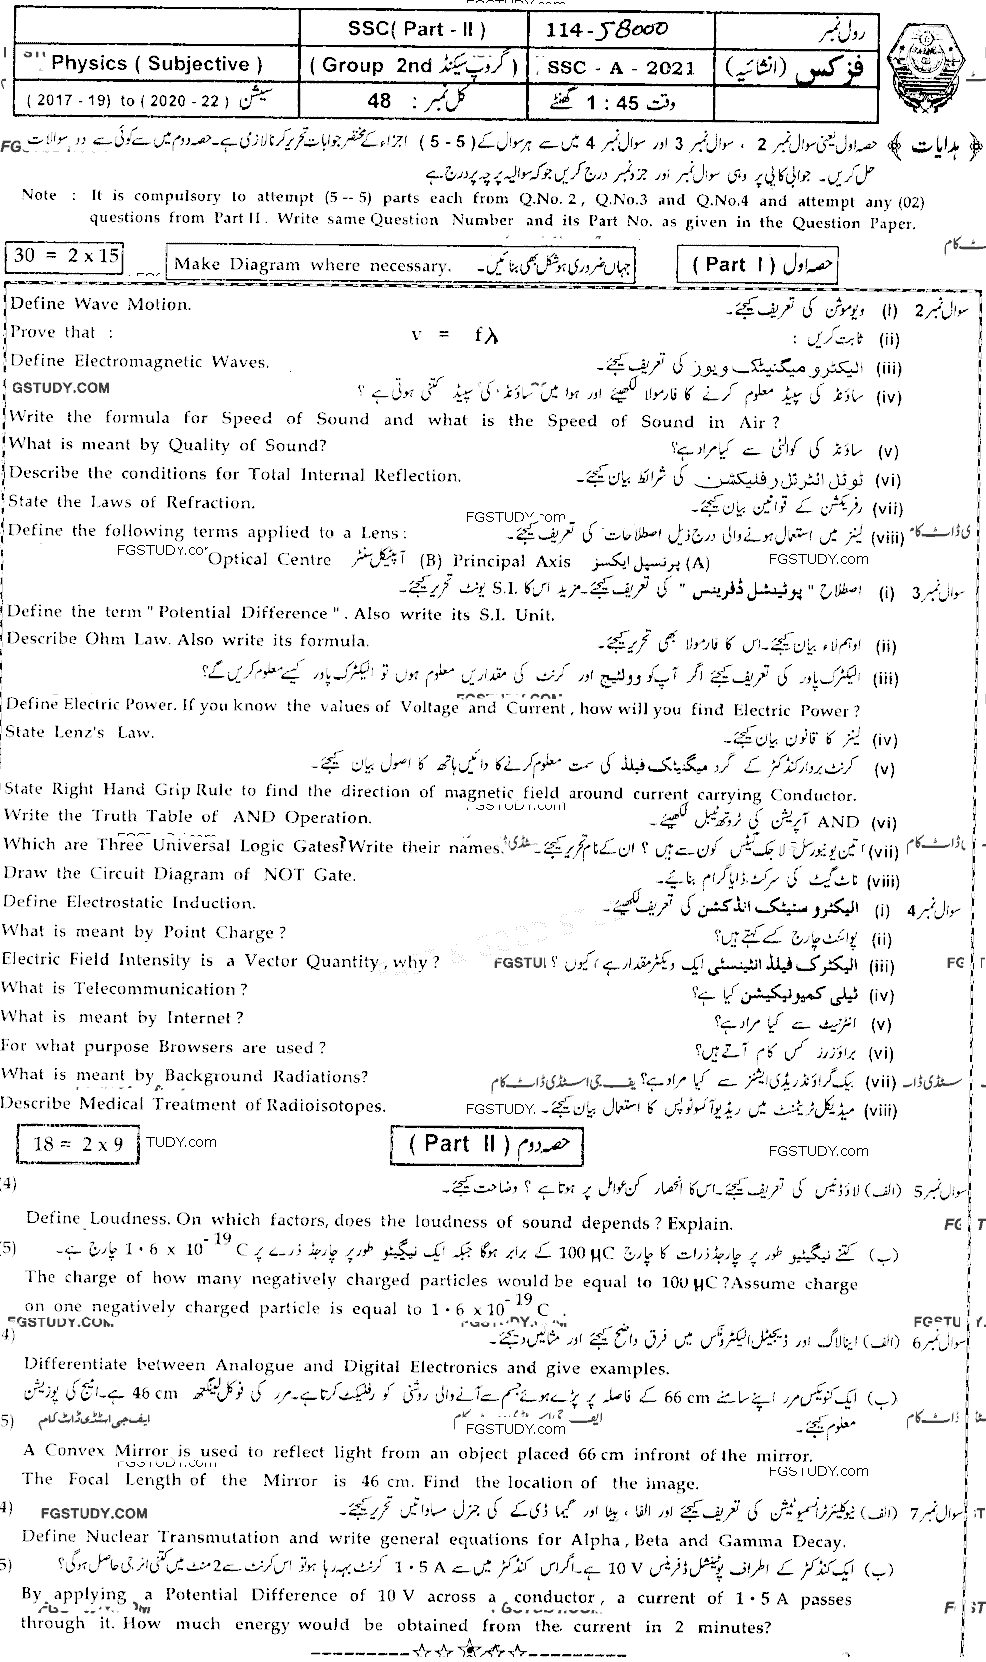 FGSTUDY.com
SSC( Part - II )
114-58000
رول نمبر
Physics ( Subjective )
( Group 2nd گروپ سیکنڈ )
SSC - A - 2021
فزکس (انشائیہ)
( 2017 - 19) to ( 2020 - 22 ) سیشن
کل نمبر : 48
وقت 1 : 45 گھنٹے
﴿ ہدایات ﴾ حصہ اول یعنی سوال نمبر 2 ، سوال نمبر 3 اور سوال نمبر 4 میں سے ہر سوال کے ( 5 - 5 ) اجزاء کے مختصر جوابات تحریر کرنا لازمی ہے۔ حصہ دوم میں سے کوئی سے دو سوالات
حل کریں۔ جوابی کاپی پر وہی سوال نمبر اور جزو نمبر درج کریں جو کہ سوالیہ پرچہ پر درج ہے
Note : It is compulsory to attempt (5 -- 5) parts each from Q.No. 2 , Q.No.3 and Q.No.4 and attempt any (02)
questions from Part II . Write same Question Number and its Part No. as given in the Question Paper.
30 = 2 x 15
Make Diagram where necessary. جہاں ضروری ہو شکل بھی بنائیں۔
( Part I ) حصہ اول
Define Wave Motion.
سوال نمبر 2 (i) ویو موشن کی تعریف کیجئے۔
Prove that : v = fλ
(ii) ثابت کریں :
Define Electromagnetic Waves.
(iii) الیکٹرو میگنیٹک ویوز کی تعریف کیجئے۔
GSTUDY.COM
(iv) ساؤنڈ کی سپیڈ معلوم کرنے کا فارمولا لکھیئے اور ہوا میں ساؤنڈ کی سپیڈ کتنی ہوتی ہے ؟
Write the formula for Speed of Sound and what is the Speed of Sound in Air ?
What is meant by Quality of Sound?
(v) ساؤنڈ کی کوالٹی سے کیا مراد ہے؟
Describe the conditions for Total Internal Reflection.
(vi) ٹوٹل انٹرنل رفلیکشن کی شرائط بیان کیجئے۔
State the Laws of Refraction.
(vii) رفریکشن کے قوانین بیان کیجئے۔
FGSTUDY.com
Define the following terms applied to a Lens :
(viii) لینز میں استعمال ہونے والی درج ذیل اصطلاحات کی تعریف کیجئے۔
FGSTUDY.co
Optical Centre آپٹیکل سنٹر (B) Principal Axis پرنسپل ایکسز (A)
FGSTUDY.com
سوال نمبر 3 (i) اصطلاح " پوٹینشل ڈفرینس " کی تعریف کیجئے۔ مزید اس کا S.I. یونٹ تحریر کیجئے۔
Define the term " Potential Difference " . Also write its S.I. Unit.
Describe Ohm Law. Also write its formula.
(ii) اوہم لاء بیان کیجئے۔ اس کا فارمولا بھی تحریر کیجئے۔
(iii) الیکٹرک پاور کی تعریف کیجئے اگر آپ کو وولٹیج اور کرنٹ کی مقداریں معلوم ہوں تو الیکٹرک پاور کیسے معلوم کریں گے؟
Define Electric Power. If you know the values of Voltage and Current , how will you find Electric Power ?
State Lenz's Law.
(iv) لینز کا قانون بیان کیجئے۔
(v) کرنٹ بردار کنڈکٹر کے گرد میگنیٹک فیلڈ کی سمت معلوم کرنے کا دائیں ہاتھ کا اصول بیان کیجئے۔
State Right Hand Grip Rule to find the direction of magnetic field around current carrying Conductor.
Write the Truth Table of AND Operation.
(vi) AND آپریشن کی ٹروتھ ٹیبل لکھیئے۔
Which are Three Universal Logic Gates? Write their names.
(vii) تین یونیورسل لاجک گیٹس کون سے ہیں ؟ ان کے نام تحریر کیجئے۔
Draw the Circuit Diagram of NOT Gate.
(viii) ناٹ گیٹ کی سرکٹ ڈایاگرام بنائیے۔
Define Electrostatic Induction.
سوال نمبر 4 (i) الیکٹرو سٹیٹک انڈکشن کی تعریف لکھیئے۔
What is meant by Point Charge ?
(ii) پوائنٹ چارج کسے کہتے ہیں؟
Electric Field Intensity is a Vector Quantity , why ?
(iii) الیکٹرک فیلڈ انٹینسٹی ایک ویکٹر مقدار ہے ، کیوں ؟
What is Telecommunication ?
(iv) ٹیلی کمیونیکیشن کیا ہے؟
What is meant by Internet ?
(v) انٹرنیٹ سے کیا مراد ہے؟
For what purpose Browsers are used ?
(vi) براؤزرز کس کام آتے ہیں؟
What is meant by Background Radiations?
(vii) بیک گراؤنڈ ریڈی ایشنز سے کیا مراد ہے؟
Describe Medical Treatment of Radioisotopes.
FGSTUDY.
(viii) میڈیکل ٹریٹمنٹ میں ریڈیو آئسوٹوپس کا استعمال بیان کیجئے۔
18 = 2 x 9
TUDY.com
( Part II ) حصہ دوم
FGSTUDY.com
سوال نمبر 5 (الف) لاؤڈنیس کی تعریف کیجئے۔ اس کا انحصار کن عوامل پر ہوتا ہے ؟ وضاحت کیجئے۔ (4)
Define Loudness. On which factors, does the loudness of sound depends ? Explain.
(ب) کتنے نیگیٹیو طور پر چارجڈ ذرات کا چارج 100 μC کے برابر ہوگا جبکہ ایک نیگیٹیو طور پر چارجڈ ذرے پر 1.6 x 10⁻¹⁹ C چارج ہے۔ (5)
The charge of how many negatively charged particles would be equal to 100 μC ? Assume charge
on one negatively charged particle is equal to 1.6 x 10⁻¹⁹ C .
FGSTUDY.COM
سوال نمبر 6 (الف) اینالاگ اور ڈیجیٹل الیکٹرونکس میں فرق واضح کیجئے اور مثالیں دیجئے۔ 4)
Differentiate between Analogue and Digital Electronics and give examples.
(ب) ایک کنویکس مرر اپنے سامنے 66 cm کے فاصلہ پر پڑے ہوئے جسم سے آنے والی روشنی کو رفلیکٹ کرتا ہے۔ مرر کی فوکل لینگتھ 46 cm ہے۔ امیج کی پوزیشن
معلوم کیجئے۔ 5)
FGSTUDY.com
A Convex Mirror is used to reflect light from an object placed 66 cm infront of the mirror.
FGSTUDY.com
The Focal Length of the Mirror is 46 cm. Find the location of the image.
سوال نمبر 7 (الف) نیوکلیئر ٹرانسموٹیشن کی تعریف کیجئے اور الفا ، بیٹا اور گیما ڈی کے کی جنرل مساواتیں تحریر کیجئے۔ 4)
FGSTUDY.COM
Define Nuclear Transmutation and write general equations for Alpha , Beta and Gamma Decay.
(ب) ایک کنڈکٹر کے اطراف پوٹینشل ڈفرینس 10 V ہے۔ اگر اس کنڈکٹر میں سے 1.5 A کرنٹ بہہ رہا ہو تو اس کرنٹ سے 2 منٹ میں کتنی انرجی حاصل ہوگی؟ 5)
By applying a Potential Difference of 10 V across a conductor , a current of 1.5 A passes
through it. How much energy would be obtained from the current in 2 minutes?